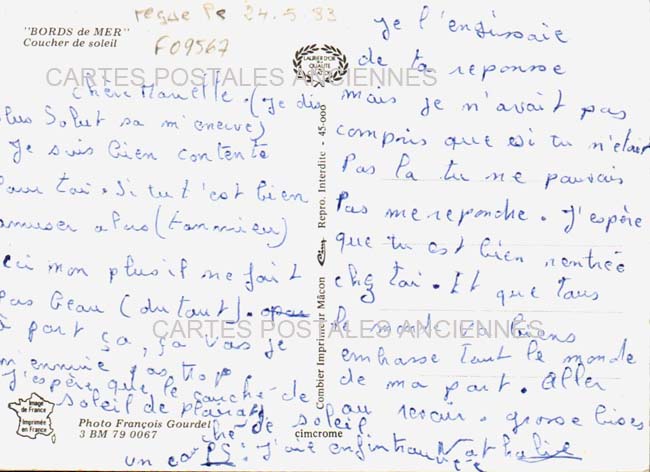 reçue le 24.5.83
"BORDS de MER"
Coucher de soleil
F09567
LAURIER D'OR
QUALITÉ
CARTES POSTALES ANCIENNES
Chère Manelle. (Je dis
plus Salut sa m'eneuve)
Je suis bien contente
pour toi. Si tu t'est bien
amuser alors (tanmieu)
ici mon plus il ne fait
pas beau (du tout).
à part ça, ça vas je
m'ennuie pas trop.
J'espère que le couché de
soleil de
ché de soleil
un ca
PS: J'aie enfin trouvée
Je l'enfissaie
de ta reponsse
mais je n'avait pas
compris que si tu n'était
Pas la tu ne pouvais
Pas me repondre. J'espère
que tu est bien rentrée
chez toi. Et que tous
le monde va biens
embrasse tout le monde
de ma part. Aller
au revoir grosse bises
Nathalie
CARTES POSTALES ANCIENNES
Combier Imprimeur Mâcon Cim Repro. Interdite - 45-000
Image
de France
Imprimée
en France
Photo François Gourdel
3 BM 79 0067
cimcrome